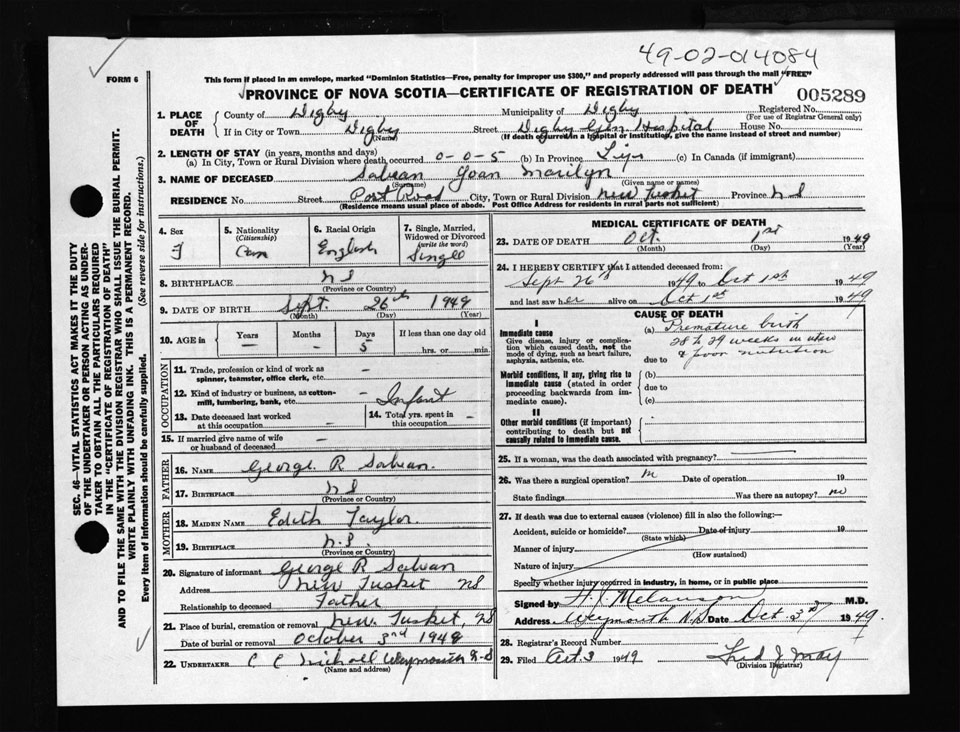 49-02-014084
FORM 6
This form if placed in an envelope, marked "Dominion Statistics—Free, penalty for improper use $300," and properly addressed will pass through the mail "FREE"
PROVINCE OF NOVA SCOTIA—CERTIFICATE OF REGISTRATION OF DEATH
005289
1. PLACE OF DEATH
County of Digby Municipality of Digby Registered No.
(For use of Registrar General only)
If in City or Town Digby Street Digby Gen. Hospital House No.
(Name) (If death occurred in a hospital or institution, give the name instead of street and number)
2. LENGTH OF STAY (in years, months and days)
(a) In City, Town or Rural Division where death occurred 0-0-5 (b) In Province Life (c) In Canada (if immigrant)
3. NAME OF DECEASED Sabean Joan Marilyn
(Surname) (Given name or names)
RESIDENCE No. Street Port Road City, Town or Rural Division New Tusket Province N S
(Residence means usual place of abode. Post Office Address for residents in rural parts not sufficient)
SEC. 46—VITAL STATISTICS ACT MAKES IT THE DUTY
OF THE UNDERTAKER OR PERSON ACTING AS UNDER-
TAKER TO OBTAIN ALL THE PARTICULARS REQUIRED
IN THE "CERTIFICATE OF REGISTRATION OF DEATH"
AND TO FILE THE SAME WITH THE DIVISION REGISTRAR WHO SHALL ISSUE THE BURIAL PERMIT.
WRITE PLAINLY WITH UNFADING INK. THIS IS A PERMANENT RECORD.
Every item of information should be carefully supplied. (See reverse side for instructions.)
4. Sex
F
5. Nationality
(Citizenship)
Can
6. Racial Origin
English
7. Single, Married,
Widowed or Divorced
(write the word)
Single
8. BIRTHPLACE N S
(Province or Country)
9. DATE OF BIRTH Sept. 26th 1949
(Month) (Day) (Year)
10. AGE in Years Months Days If less than one day old
– 5 hrs. or min.
OCCUPATION
11. Trade, profession or kind of work as
spinner, teamster, office clerk, etc. –
12. Kind of industry or business, as cotton-
mill, lumbering, bank, etc. – Infant
13. Date deceased last worked
at this occupation –
14. Total yrs. spent in
this occupation –
15. If married give name of wife
or husband of deceased –
FATHER
16. NAME George R Sabean.
17. BIRTHPLACE N S
(Province or Country)
MOTHER
18. MAIDEN NAME Edith Taylor
19. BIRTHPLACE N.S.
(Province or Country)
20. Signature of informant George R Sabean
Address New Tusket NS
Relationship to deceased Father
21. Place of burial, cremation or removal New. Tusket, NS
Date of burial or removal October 3rd 1949
22. UNDERTAKER C C Nichall Weymouth N-S
(Name and address)
MEDICAL CERTIFICATE OF DEATH
23. DATE OF DEATH Oct. 1st 1949
(Month) (Day) (Year)
24. I HEREBY CERTIFY that I attended deceased from:
Sept 26th 1949 to Oct 1st 1949
and last saw her alive on Oct 1st 1949
CAUSE OF DEATH
I
Immediate cause
Give disease, injury or complica-
tion which caused death, not the
mode of dying, such as heart failure,
asphyxia, asthenia, etc.
(a) Premature birth
28 to 29 weeks in utero
due to & poor nutrition
Morbid conditions, if any, giving rise to
immediate cause (stated in order
proceeding backwards from im-
mediate cause).
(b)
due to
(c)
II
Other morbid conditions (if important)
contributing to death but not
causally related to immediate cause.
25. If a woman, was the death associated with pregnancy?
26. Was there a surgical operation? Date of operation 19
State findings Was there an autopsy? no
27. If death was due to external causes (violence) fill in also the following:—
Accident, suicide or homicide? Date of injury 19
(State which)
Manner of injury
(How sustained)
Nature of injury
Specify whether injury occurred in industry, in home, or in public place
Signed by H. J. Melanson M.D.
Address Weymouth N.S Date Oct 3rd 1949
28. Registrar's Record Number
29. Filed Oct. 3 1949 Fred J May
(Division Registrar)